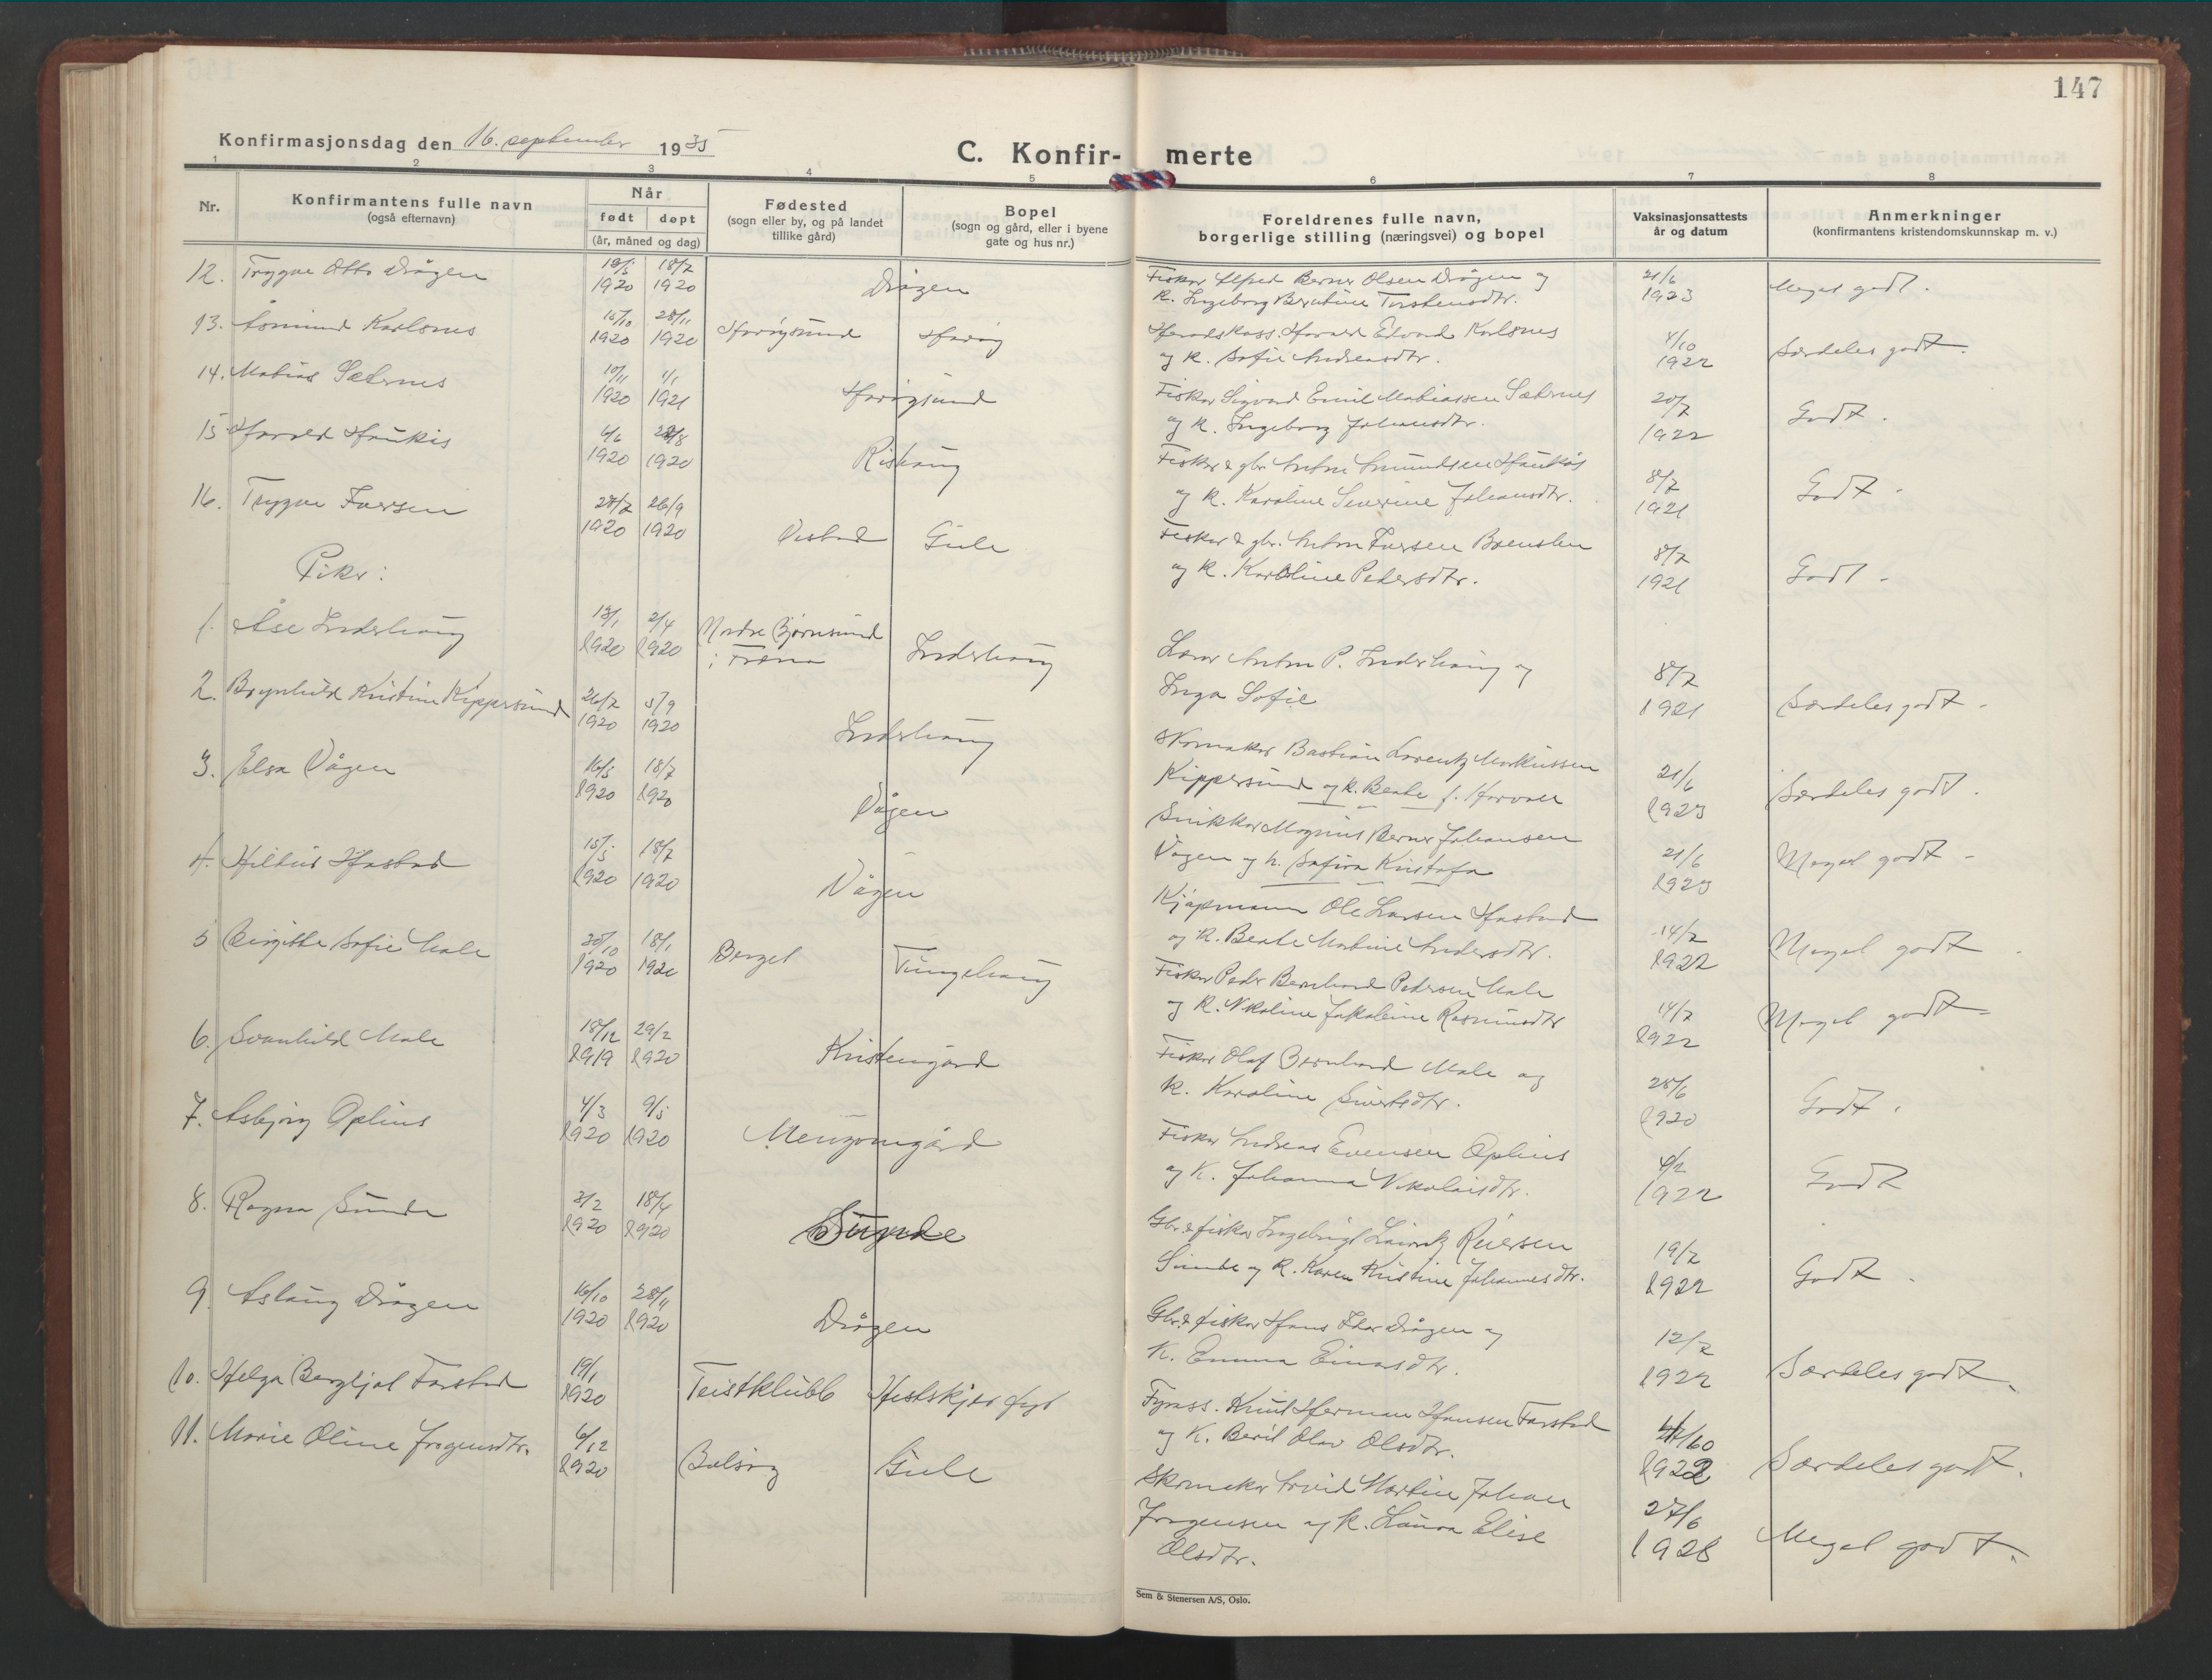 147
Konfirmasjonsdag den 16. september 1935
C. Konfir- merte
1 2 3 4 5 6 7 8
Nr.
Konfirmantens fulle navn
(også efternavn)
Når
født døpt
(år, måned og dag)
Fødested
(sogn eller by, og på landet
tillike gård)
Bopel
(sogn og gård, eller i byene
gate og hus nr.)
Foreldrenes fulle navn,
borgerlige stilling (næringsvei) og bopel
Vaksinasjonsattests
år og datum
Anmerkninger
(konfirmantens kristendomskunnskap m. v.)
12. Trygve Otto Drågen 18/7 Drågen Fisker Alfred Berner Olsen Drågen og 21/6 Meget godt.
1920 1920 k. Ingeborg Berntine Torstensdtr. 1923
13. Åsmund Karlsnes 15/10 28/11 Harøysund Harøy Heradskass. Harald Edvard Karlsnes 4/10 Særdeles godt.
1920 1920 og k. Sofie Andreasdtr. 1922
14. Matias Sæternes 10/11 1/1 Harøysund Fisker Sigvard Emil Matiassen Sæternes 20/7 Godt.
1920 1921 og k. Ingeborg Johansdtr. 1922
15 Harald Haukås 6/6 Rishaug Fisker & gbr. Anton Amundsen Haukås 8/7 Godt.
1920 1920 og k. Karoline Severine Johansdtr. 1921
16. Trygve Iversen 26/9 Vestad Gule Fisker & gbr. Anton Iversen 8/7 Godt.
1920 1920 og k. Karoline Pedersdtr. 1921
Piker:
1. Åse Inderhaug 13/1 2/4 Nordre Bjørnsund Inderhaug Lærer Anton P. Inderhaug og 8/7 Særdeles godt.
1920 1920 i Fræna Inga Sofie 1921
2. Brynhild Kristine Kippersund 26/7 5/9 Inderhaug Skomaker Bastian Lorentz Markussen 21/6 Særdeles godt.
1920 1920 Kippersund og k. Beate f. Horvall 1923
3. Elsa Vågen 16/5 18/7 Vågen Snikker Magnus Berner Johansen 21/6 Meget godt
1920 1920 Vågen og h. Safira Kristofa 1923
4. Hildur Hastad 15/5 18/7 Vågen Kjøpmann Ole Larsen Hastad 14/7 Meget godt
1920 1920 og k. Beate Martine Andersdtr. 1922
5 Birgitte Sofie Male 30/10 18/1 Berget Tungehaug Fisker Peder Bernhard Pedersen Male 14/7 Meget godt
1920 1921 og k. Nikoline Jakobine Rasmusdtr 1922
6. Svanhild Male 18/12 29/2 Kristengård Fisker Olaf Bernhard Male og 28/6 Godt.
1919 1920 k. Karoline Sivertsdtr. 1920
7. Asbjørg Oplius 4/3 9/5 Fisker Andreas Evensen Oplius Godt
1920 1920 og k. Johanna Nikolaisdtr. 1922
8. Ragna Sunde 2/2 18/4 Sunde Gbr. & fisker Ingebrigt Laurits Reiersen 19/7 Godt.
1920 1920 Sunde og k. Karen Kristine Johannesdtr. 1922
9. Aslaug Drågen 16/10 28/11 Drågen Gbr. & fisker Hans Edor Drågen og 12/7 Særdeles godt.
1920 1920 k. Emma Einarsdtr. 1922
10. Helga Bergljot Farstad 19/1 Teistklubb Hestskjær fyr Fyrass. Knut Herman Hansen Farstad Særdeles godt.
1920 og k. Berit Olav Olsdtr. 1922
11. Marie Oline Jørgensdtr. 6/12 Bolsøy Gule Skomaker Arvid Martin Johan 27/6 Meget godt.
1920 Jørgensen og k. Laura Elise 1928
Olsdtr.
Sem & Stenersen A/S, Oslo.